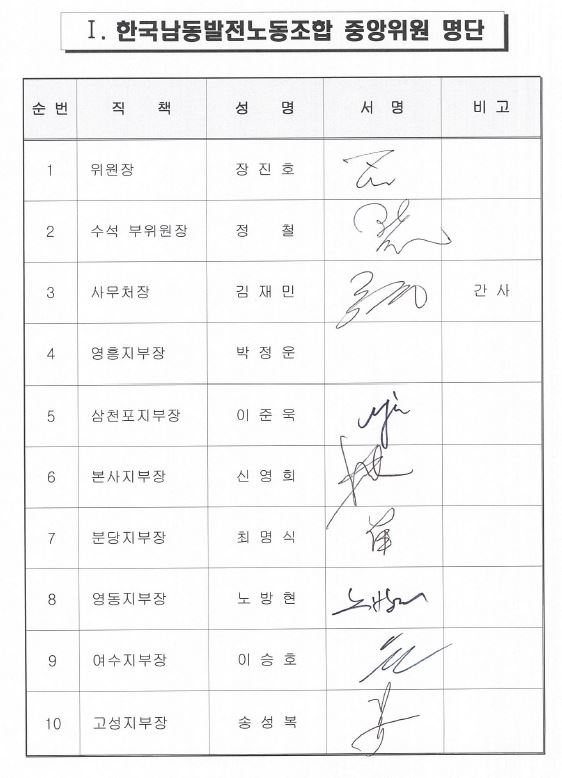 Ⅰ. 한국남동발전노동조합 중앙위원 명단
순 번 직 책 성 명 서 명 비 고
1 위원장 장 진 호
2 수석 부위원장 정 철
3 사무처장 김 재 민 간 사
4 영흥지부장 박 정 운
5 삼천포지부장 이 준 욱
6 본사지부장 신 영 희
7 분당지부장 최 명 식
8 영동지부장 노 방 현
9 여수지부장 이 승 호
10 고성지부장 송 성 복